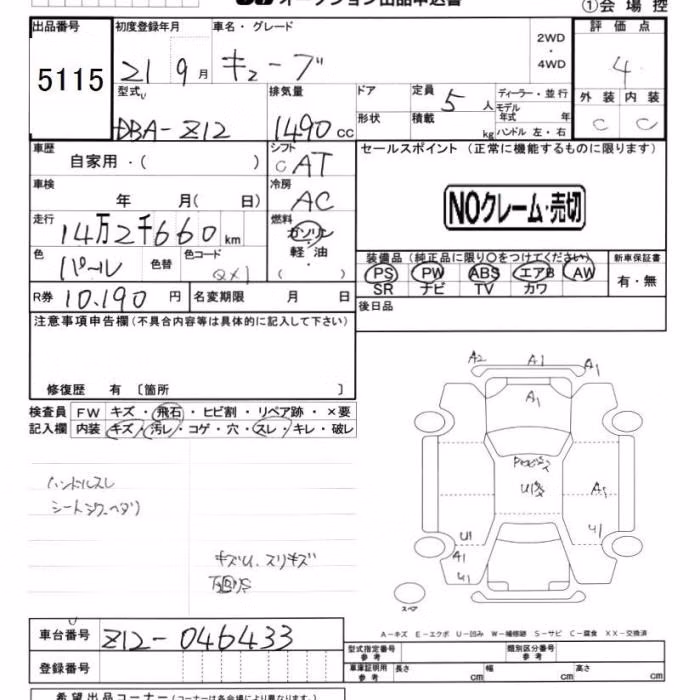 オークション出品申込書
①会場控
出品番号 初度登録年月 車名・グレード 評価点
5115 21 9月 キューブ 2WD・4WD 4
型式 排気量 ドア 定員 5人 ディーラー・並行 外装 内装
DBA-Z12 1490cc 形状 積載 kg モデル年式 年 ハンドル 左・右 C C
車歴 自家用・( ) シフト CAT セールスポイント (正常に機能するものに限ります)
車検 年 月( 日) 冷房 AC
NOクレーム・売切
走行 14万2千660km 燃料 ガソリン・軽油 ( )
色 パール 色替 色コード QX1
装備品 (純正品に限り○をつけてください) 新車保証書
PS PW ABS エアB AW 有・無
SR ナビ TV カワ
R券 10,190円 名変期限 月 日 後日品
注意事項申告欄 (不具合内容等は具体的に記入して下さい)
修復歴 有 〔箇所 〕
検査員 FW キズ・飛石・ヒビ割・リペア跡・×要
記入欄 内装 キズ・汚レ・コゲ・穴・スレ・キレ・破レ
ハンドルスレ
シートシワ・ヘタリ
キズU、スリキズ
下回りS
A2 A1 A1
A1
A1
U1 U1
A1
U1
スペア
A−キズ E−エクボ U−凹み W−補修跡 S−サビ C−腐食 XX−交換済
車台番号 Z12-046433
型式指定番号 参考 類別区分番号 参考
登録番号 車庫証明用 参考 長さ cm 幅 cm 高さ cm
希望出品コーナー (コーナーは各会場により異なります。)